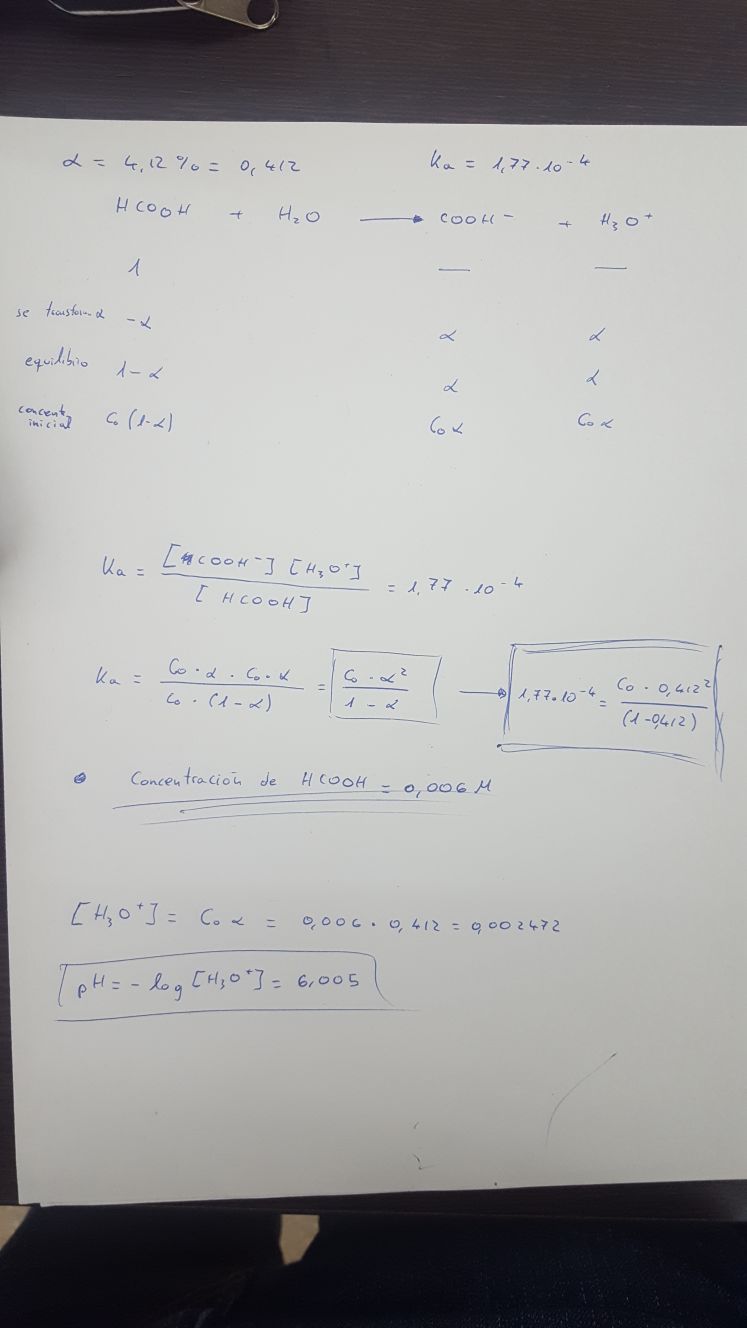 α = 4,12 % = 0,412 Ka = 1,77·10⁻⁴
HCOOH + H₂O → COOH⁻ + H₃O⁺
1 — —
se transforma -α α α
equilibrio 1-α α α
concent. inicial C₀ (1-α) C₀α C₀α
Ka = [HCOOH⁻] [H₃O⁺] / [HCOOH] = 1,77 · 10⁻⁴
Ka = C₀·α · C₀·α / C₀ · (1-α) = C₀ · α² / 1 - α → 1,77·10⁻⁴ = C₀ · 0,412² / (1-0,412)
• Concentración de HCOOH = 0,006 M
[H₃O⁺] = C₀ α = 0,006 · 0,412 = 0,002472
pH = - log [H₃O⁺] = 6,005